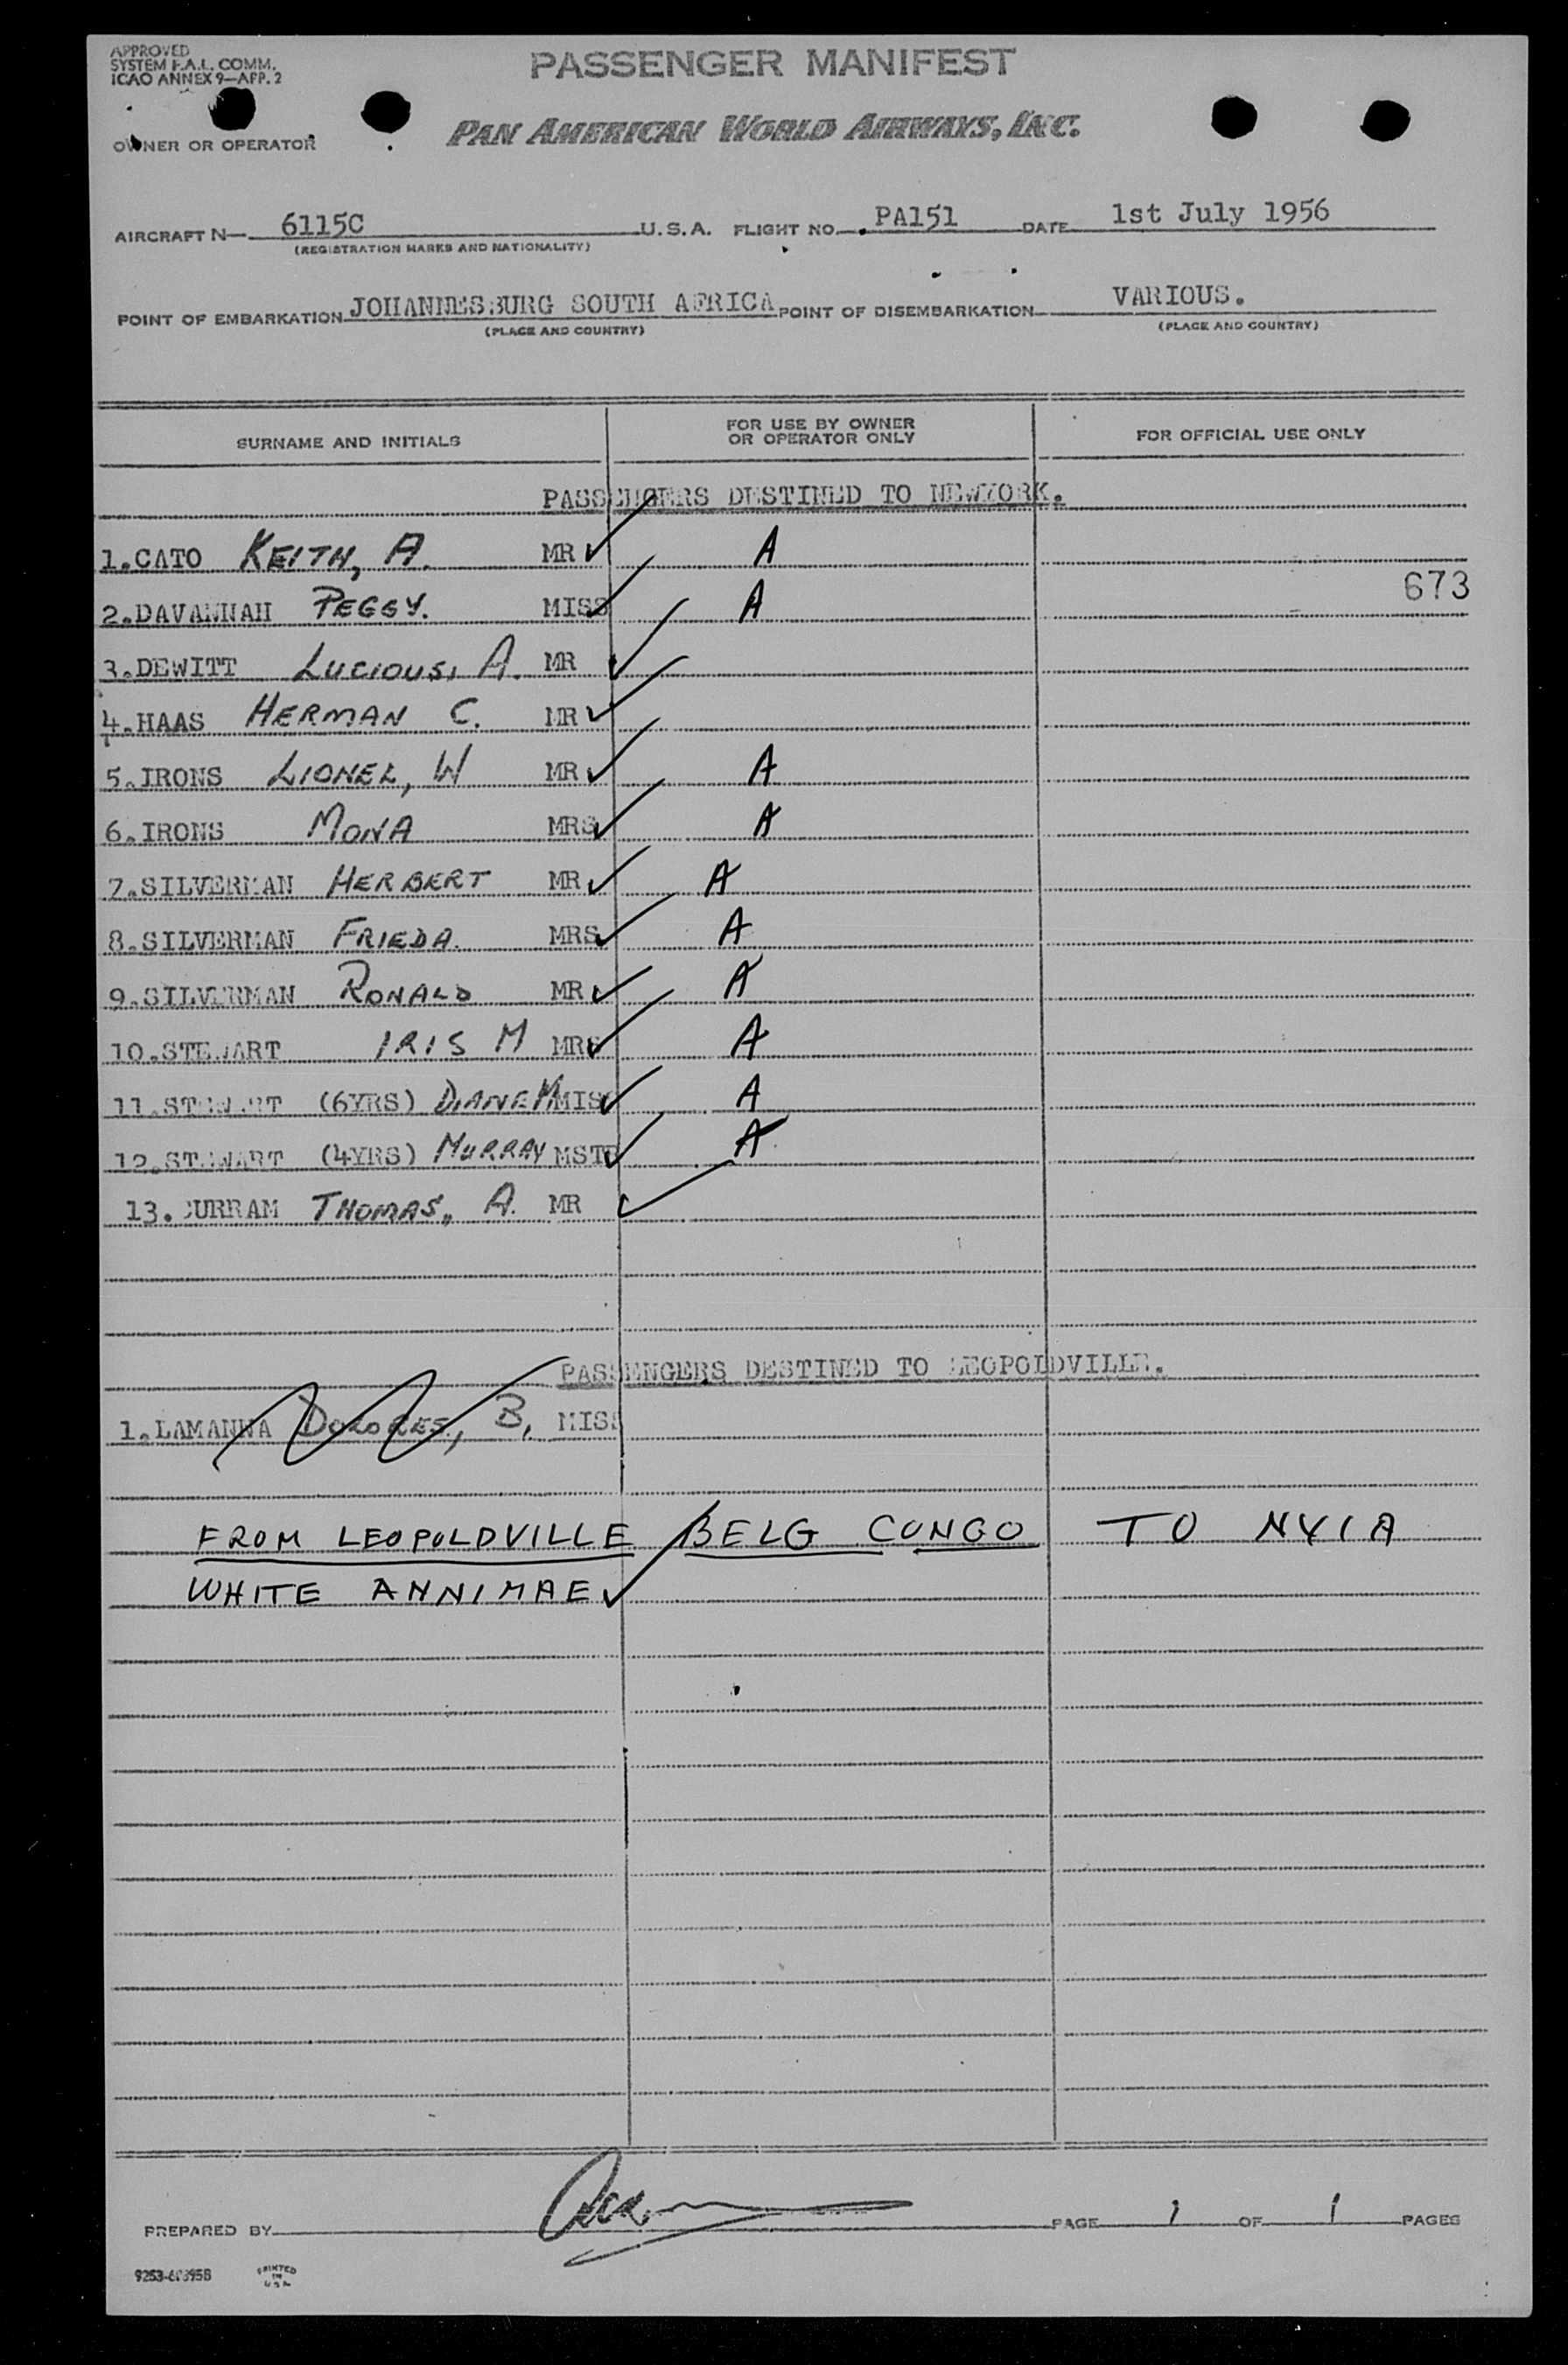 APPROVED
SYSTEM F.A.L. COMM.
ICAO ANNEX 9—APP. 2
PASSENGER MANIFEST
OWNER OR OPERATOR
PAN AMERICAN WORLD AIRWAYS, INC.
AIRCRAFT N— 6115C U.S.A. FLIGHT NO. PA151 DATE 1st July 1956
(REGISTRATION MARKS AND NATIONALITY)
POINT OF EMBARKATION JOHANNESBURG SOUTH AFRICA POINT OF DISEMBARKATION VARIOUS.
(PLACE AND COUNTRY) (PLACE AND COUNTRY)
SURNAME AND INITIALS FOR USE BY OWNER OR OPERATOR ONLY FOR OFFICIAL USE ONLY
PASSENGERS DESTINED TO NEWYORK.
1.CATO KEITH, A. MR A
673
2.DAVANNAH PEGGY. MISS A
3.DEWITT LUCIOUS, A. MR
4.HAAS HERMAN C. MR
5.IRONS LIONEL, W MR A
6.IRONS MONA MRS A
7.SILVERMAN HERBERT MR A
8.SILVERMAN FRIEDA. MRS A
9.SILVERMAN RONALD MR A
10.STEWART IRIS M MRS A
11.STEWART (6YRS) DIANE MISS A
12.STEWART (4YRS) MURRAY MSTR A
13.CURRAM THOMAS, A. MR
PASSENGERS DESTINED TO LEOPOLDVILLE.
1.LAMANNA DOLORES, B, MISS
FROM LEOPOLDVILLE BELG CONGO TO NYIA
WHITE ANNIMAE
PREPARED BY PAGE 1 OF 1 PAGES
PRINTED
IN
U S A